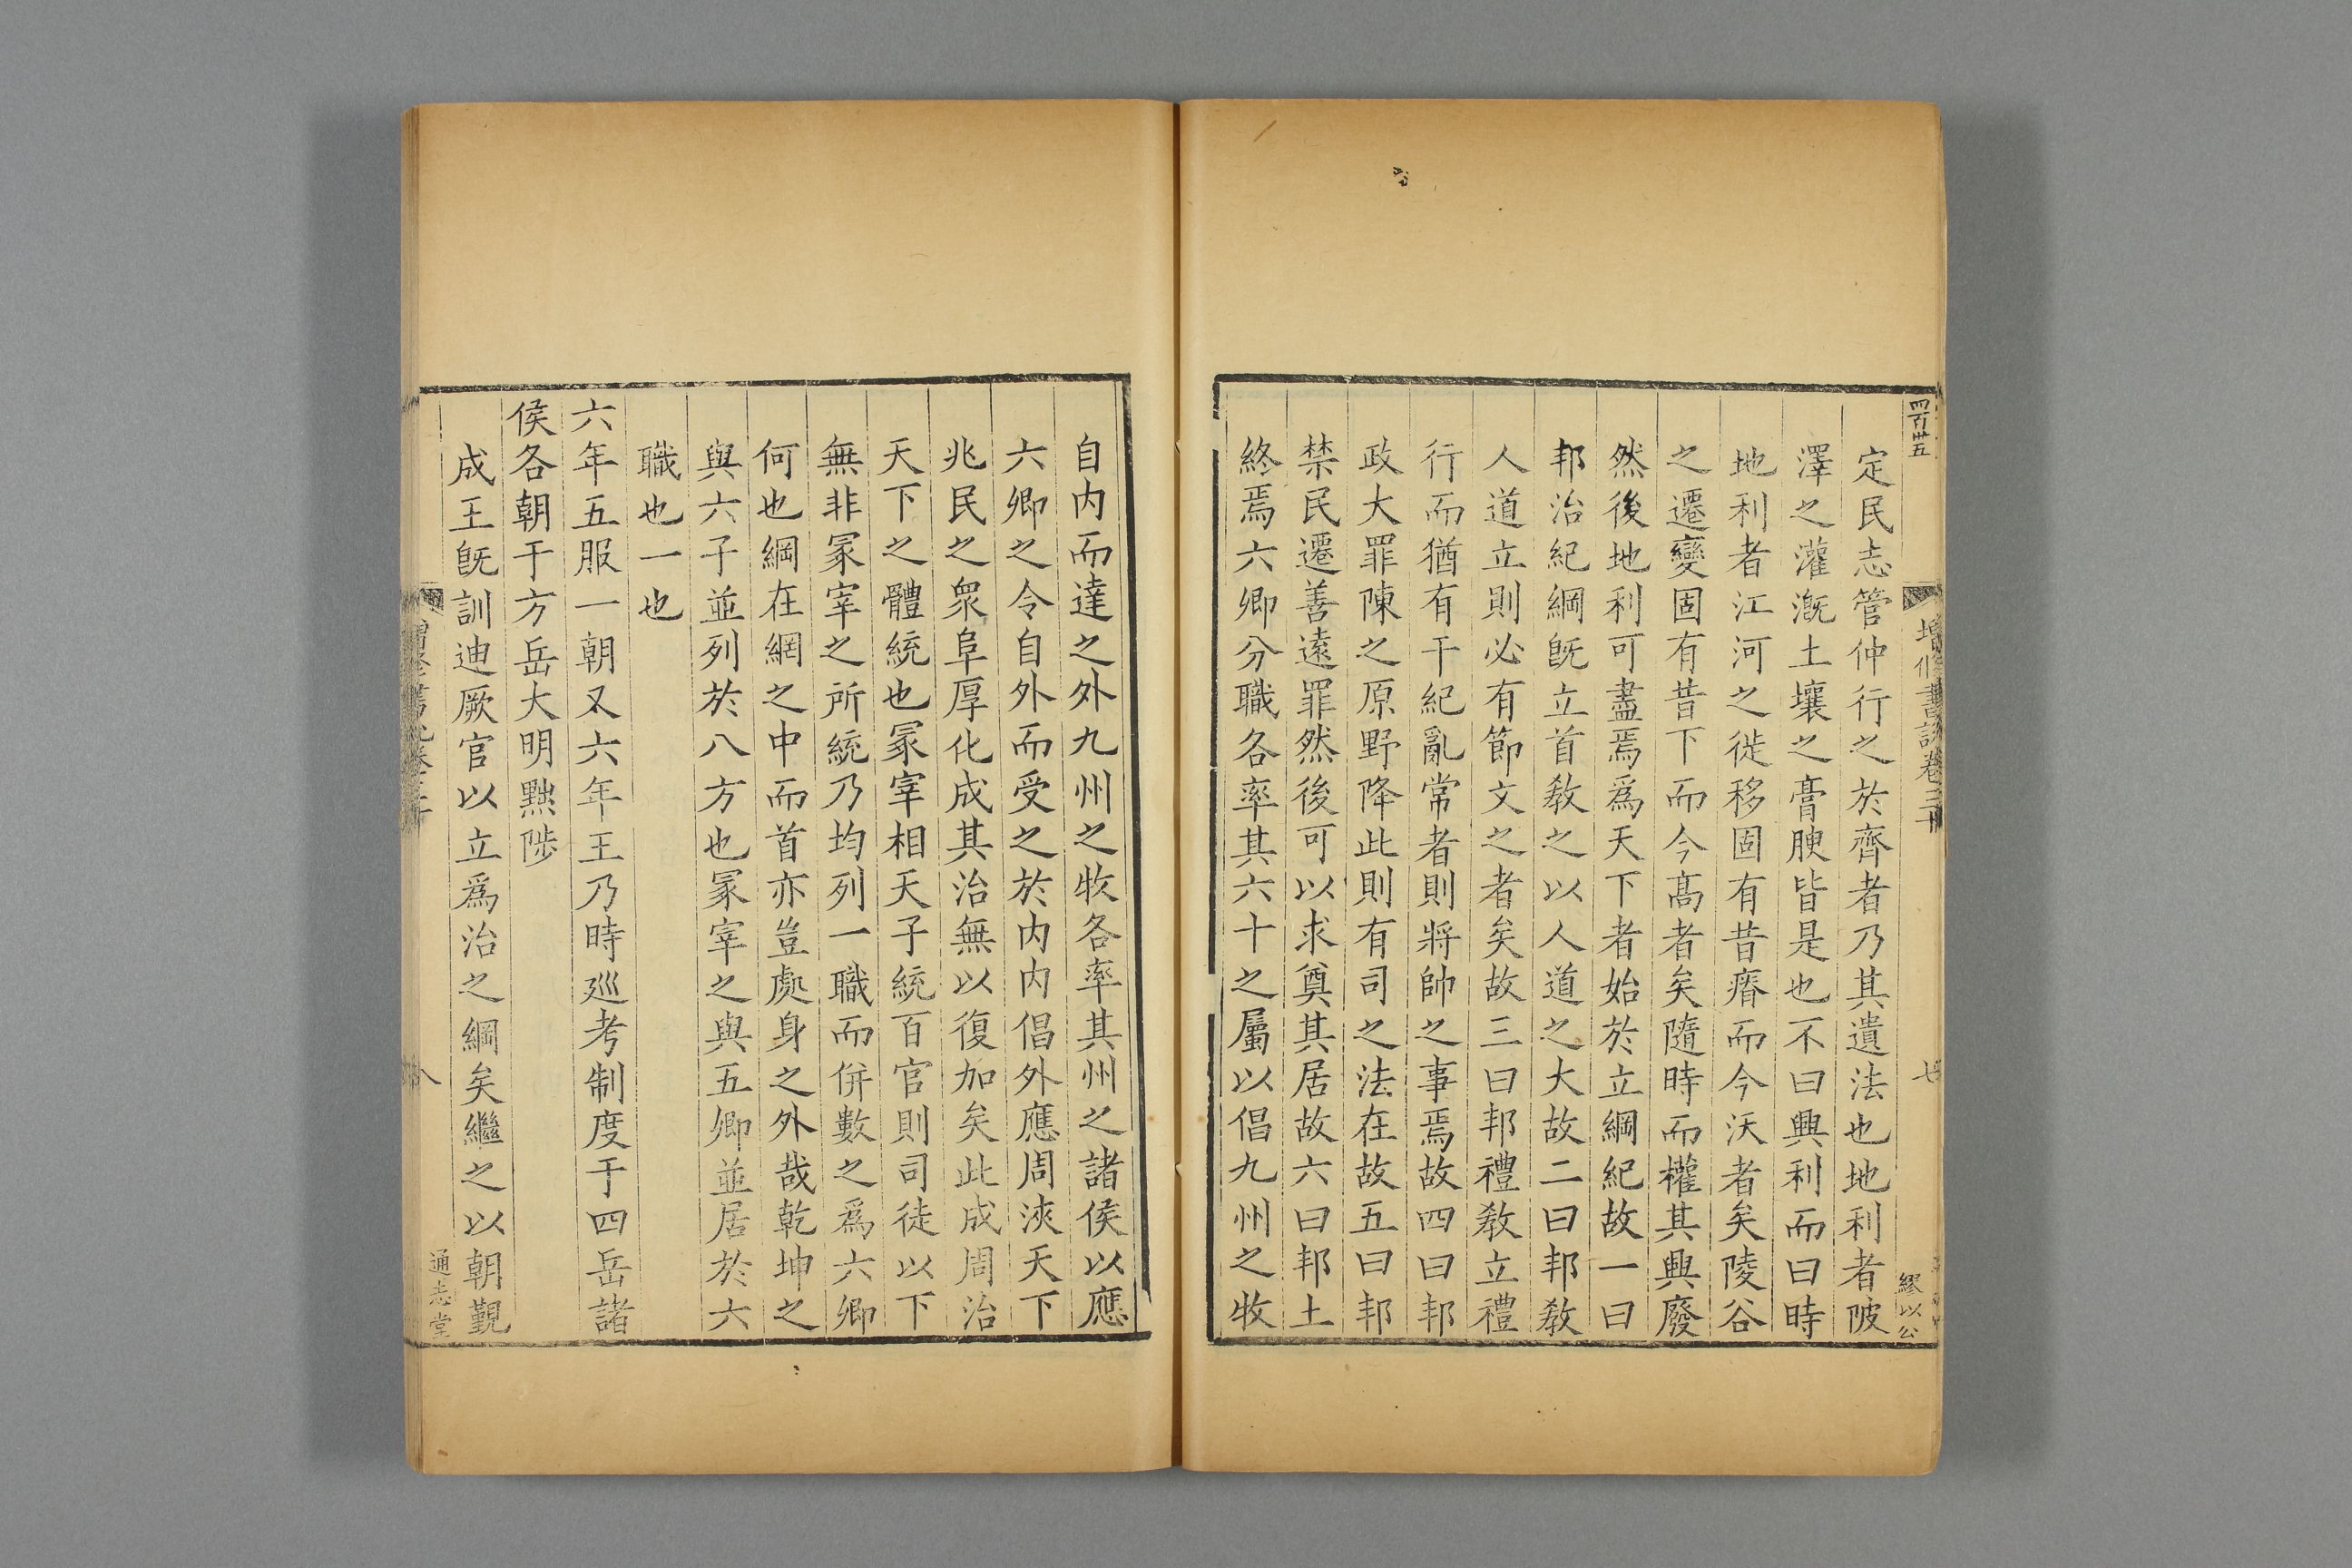 四百卅五
增修書說卷三十
七
繆以公
定民志管仲行之於齊者乃其遺法也地利者陂
澤之灌溉土壤之膏腴皆是也不曰興利而曰時
地利者江河之徙移固有昔瘠而今沃者矣陵谷
之遷變固有昔下而今高者矣隨時而權其興廢
然後地利可盡焉爲天下者始於立綱紀故一曰
邦治紀綱旣立首敎之以人道之大故二曰邦敎
人道立則必有節文之者矣故三曰邦禮敎立禮
行而猶有干紀亂常者則將帥之事焉故四曰邦
政大罪陳之原野降此則有司之法在故五曰邦
禁民遷善遠罪然後可以求奠其居故六曰邦土
終焉六卿分職各率其六十之屬以倡九州之牧
自内而達之外九州之牧各率其州之諸侯以應
六卿之令自外而受之於内内倡外應周浹天下
兆民之衆阜厚化成其治無以復加矣此成周治
天下之體統也冢宰相天子統百官則司徒以下
無非冢宰之所統乃均列一職而併數之爲六卿
何也綱在網之中而首亦豈處身之外哉乾坤之
與六子並列於八方也冢宰之與五卿並居於六
職也一也
六年五服一朝又六年王乃時巡考制度于四岳諸
侯各朝于方岳大明黜陟
成王旣訓迪厥官以立爲治之綱矣繼之以朝覲
增修書說卷三十
八
通志堂